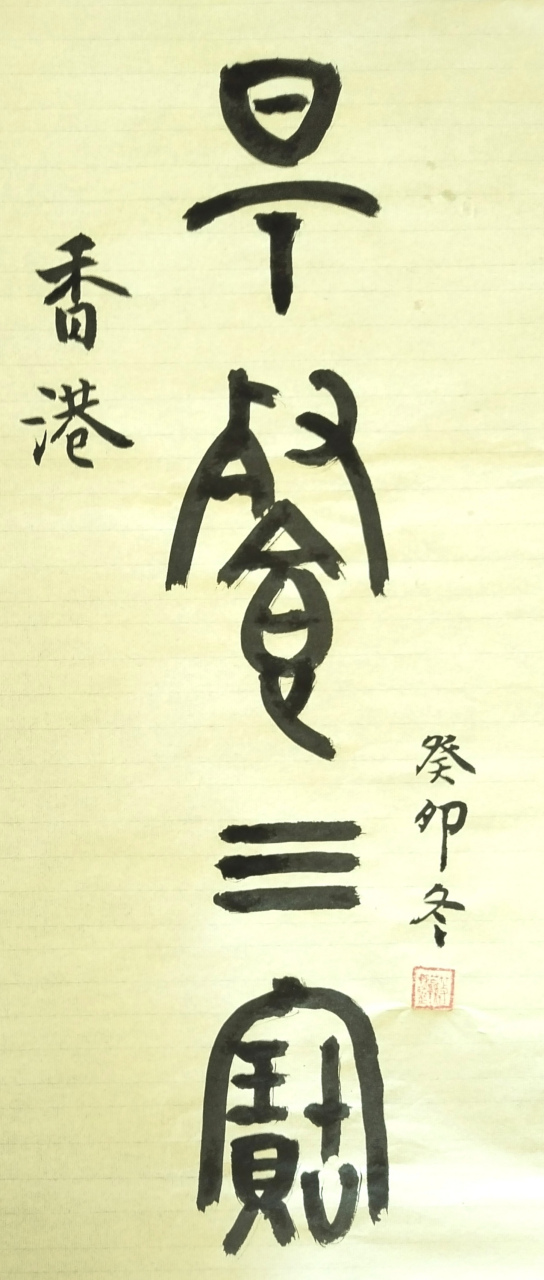 香港
早餐三寶
癸卯冬